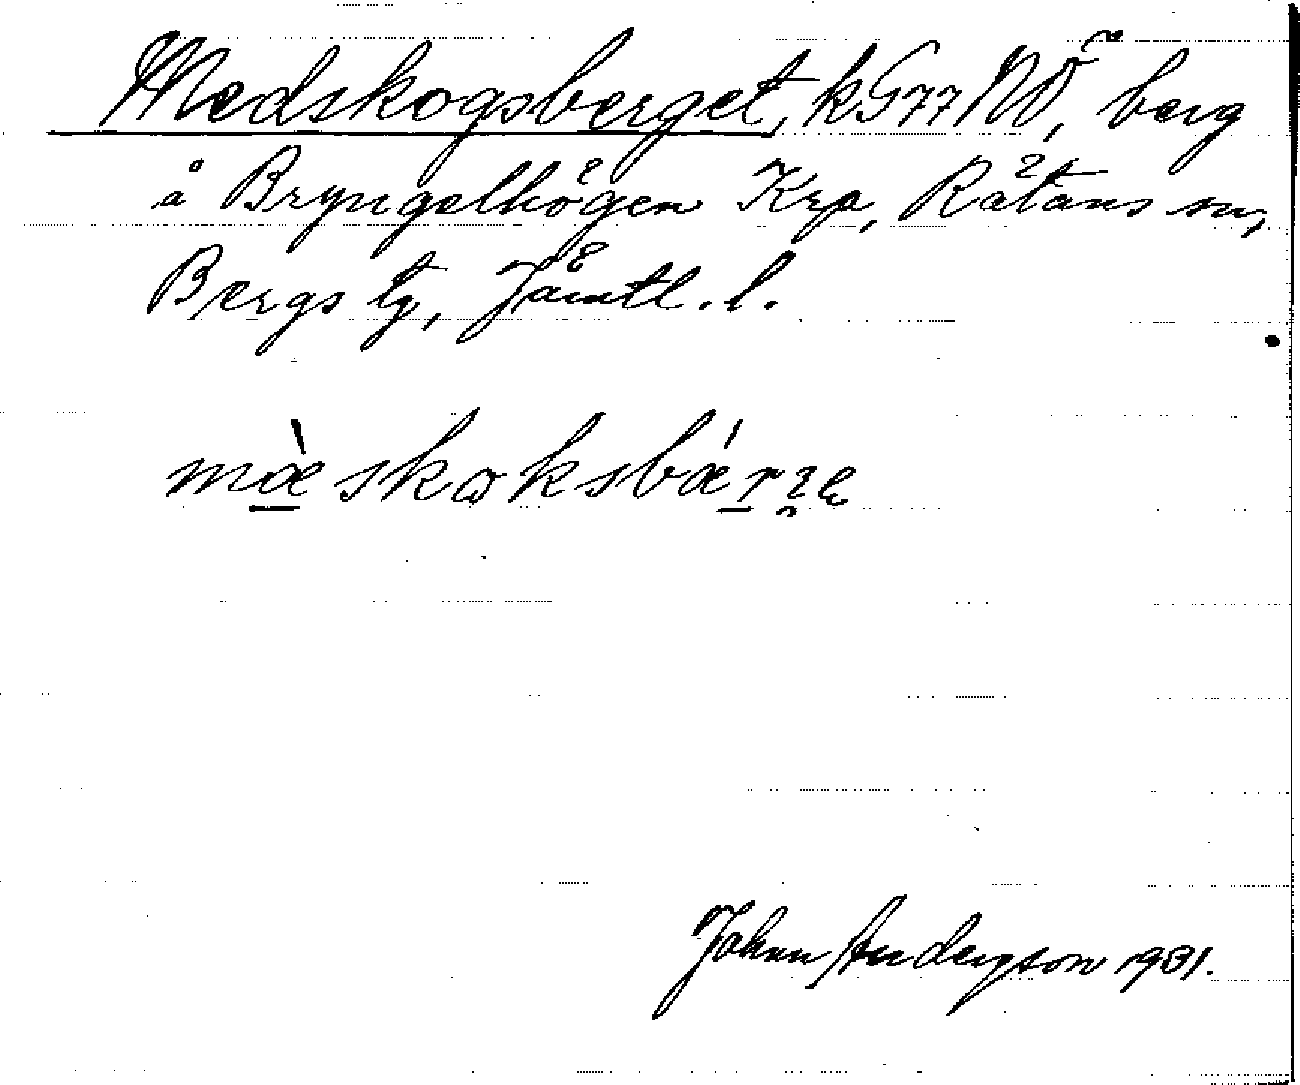 Medskogsberget, kG77NÖ, berg
å Bryngelhögen Krp, Rätans sn,
Bergs tg, Jämtl. l.
mæ̀skoksbǽrge
Johan Anderson 1931.